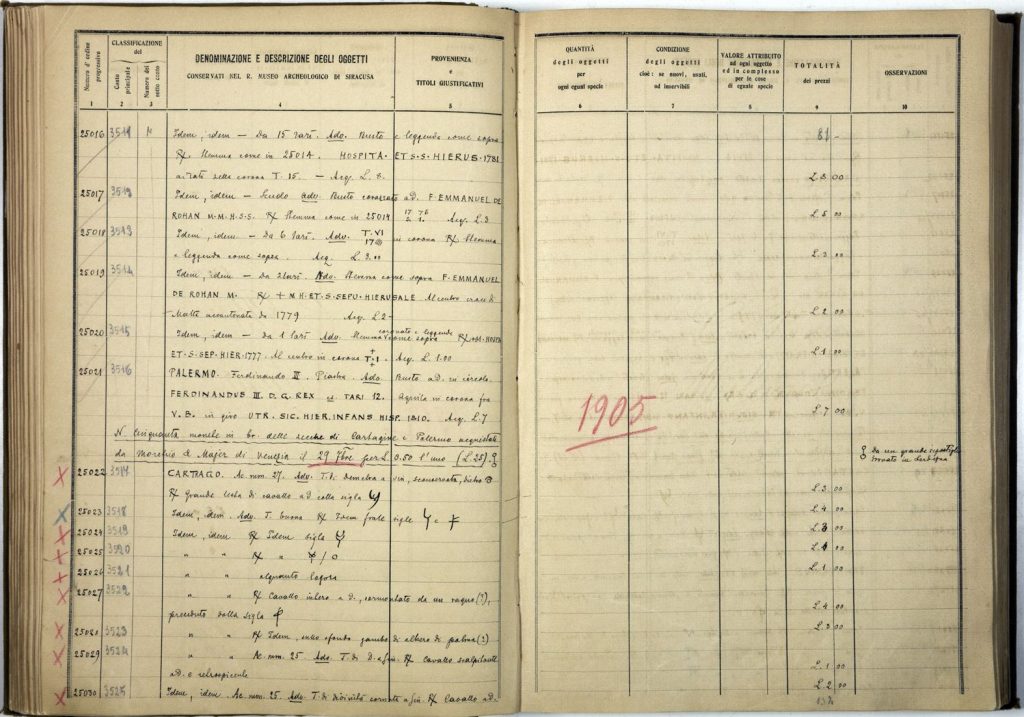 Numero d'ordine progressivo
CLASSIFICAZIONE del
Conto principale
Numero del sotto conto
DENOMINAZIONE E DESCRIZIONE DEGLI OGGETTI
CONSERVATI NEL R. MUSEO ARCHEOLOGICO DI SIRACUSA
PROVENIENZA
e
TITOLI GIUSTIFICATIVI
QUANTITÀ
degli oggetti
per
ogni egual specie
CONDIZIONE
degli oggetti
cioè: se nuovi, usati,
od inservibili
VALORE ATTRIBUITO
ad ogni oggetto
ed in complesso
per le cose
di eguale specie
TOTALITÀ
dei prezzi
OSSERVAZIONI
1 2 3 4 5 6 7 8 9 10
25016 3511 Idem, idem — Da 15 tarì. Adv. Busto e leggenda come sopra 81 -
℞. Stemma come in 25014. HOSPITA. ET·S·S·HIERUS·1781
ai lati della corona T. 15. — Acq. L. 3. L. 3 00
25017 3512 Idem, idem — Scudo adv. Busto corazzato a D. F·EMMANUEL DE
ROHAN M·M·H·S·S· ℞ Stemma come in 25014 Acq. L. 5 L. 5 00
25018 3513 Idem, idem — Da 6 tarì. Adv. T·VI in corona ℞ Stemma
e leggenda come sopra. Acq. L. 3.00 L. 3 00
25019 3514 Idem, idem — Da 2 tarì. Adv. Stemma come sopra F·EMMANUEL
DE ROHAN M. ℞ + M·H·ET·S·SEPU·HIERUSALE Al centro croce di
Malta accantonata da 1779 Acq. L 2- L 2 00
25020 3515 Idem, idem — Da 1 tarì Adv. Stemma coronato e leggenda come sopra ℞ HOSPITA
ET·S·SEP·HIER·1777. Al centro in corona T·1 Acq. L. 1.00 L. 1 00
25021 3516 PALERMO. Ferdinando III. Piastra. Adv. Busto a D. in circolo
FERDINANDUS III. D. G. REX TARI 12. Aquila in corona fra
V. B. in giro UTR. SIC. HIER. INFANS HISP. 1810. Acq. L. 7 L. 7 00
1905
N. Cinquanta monete in br. delle zecche di Cartagine e Palermo acquistate
da di Venezia il 29 7bre per L. 0.50 l'una (L. 25)
Da un grande ripostiglio trovato in Sardegna
25022 3517 CARTAGO. Ae mm. 27. Adv. T. di Demetra a sin., sconservata, dietro
℞ Grande testa di cavallo a D colla sigla L. 3 00
25023 3518 Idem, idem. Adv. T. buona ℞ Idem fra le sigle e L. 4 00
25024 3519 Idem, idem ℞ Idem sigla L. 3 00
25025 3520 " " ℞ " L. 4 00
25026 3521 " " alquanto logora L. 1 00
25027 3522 " " ℞ Cavallo intero a D., sormontato da un (?),
preceduto dalla sigla L. 4 00
25028 3523 " " ℞ Idem, sullo sfondo gambo di albero di palma (?) L. 3 00
25029 3524 " " Ae mm. 25 Adv. T. di D. a sin. ℞ Cavallo scalpitante
a D. e retrospicente L. 1 00
25030 3525 Idem, idem. Ae mm. 25. Adv. T. di divinità cornuta a sin. ℞ Cavallo a D. L. 2 00